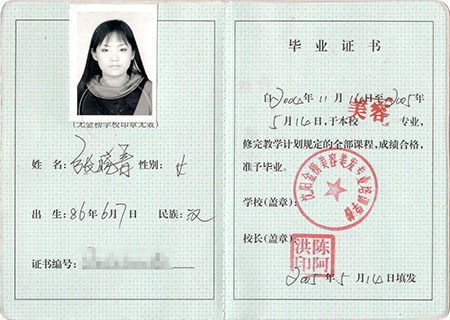 (无金榜学校印章无效)
姓名: 张晓 性别: 女
出生: 86年6月7日 民族: 汉
证书编号:
毕业证书
自2004年11月14日至2005年
5月14日,于本校 美容 专业,
修完教学计划规定的全部课程,成绩合格,
准予毕业。
沈阳金榜美容美发专业培训学校
学校(盖章):
校长(盖章):
陈阿洪印
2005年5月14日填发